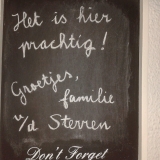 Het is hier
prachtig!
Groetjes,
familie
v/d Sterren
Don't Forget